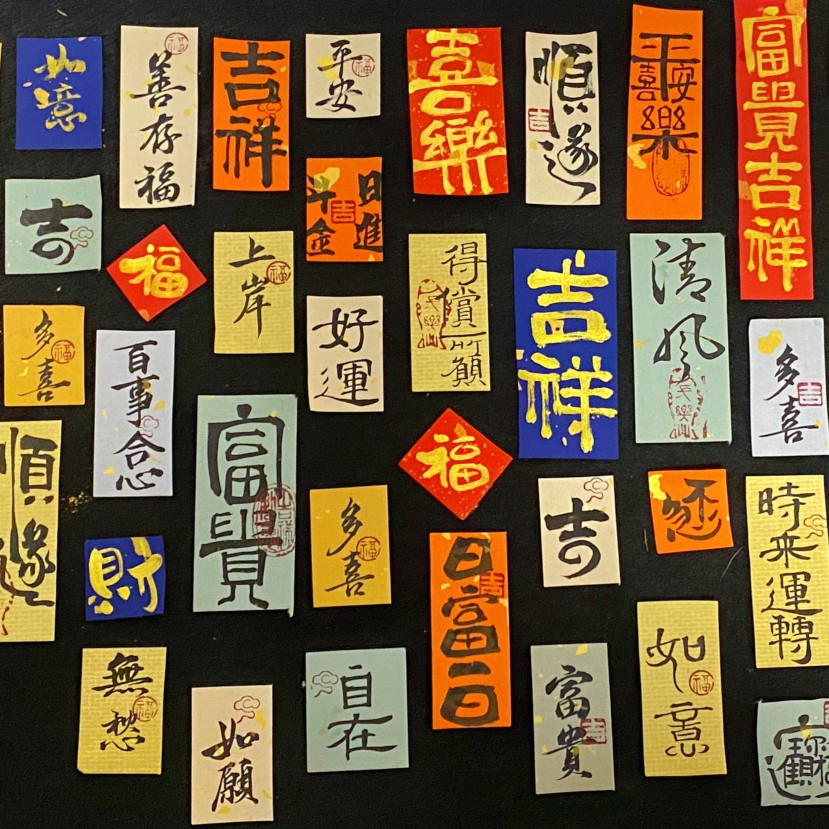 如意
善存福
吉祥
平安
喜樂
順遂
平安喜樂
富貴吉祥
吉
福
上岸
日進
斗金
得償所願
吉祥
清風
多喜
百事合心
好運
多喜
順遂
富貴
多喜
福
日富一日
吉
時來運轉
財
無愁
如願
自在
富貴
如意